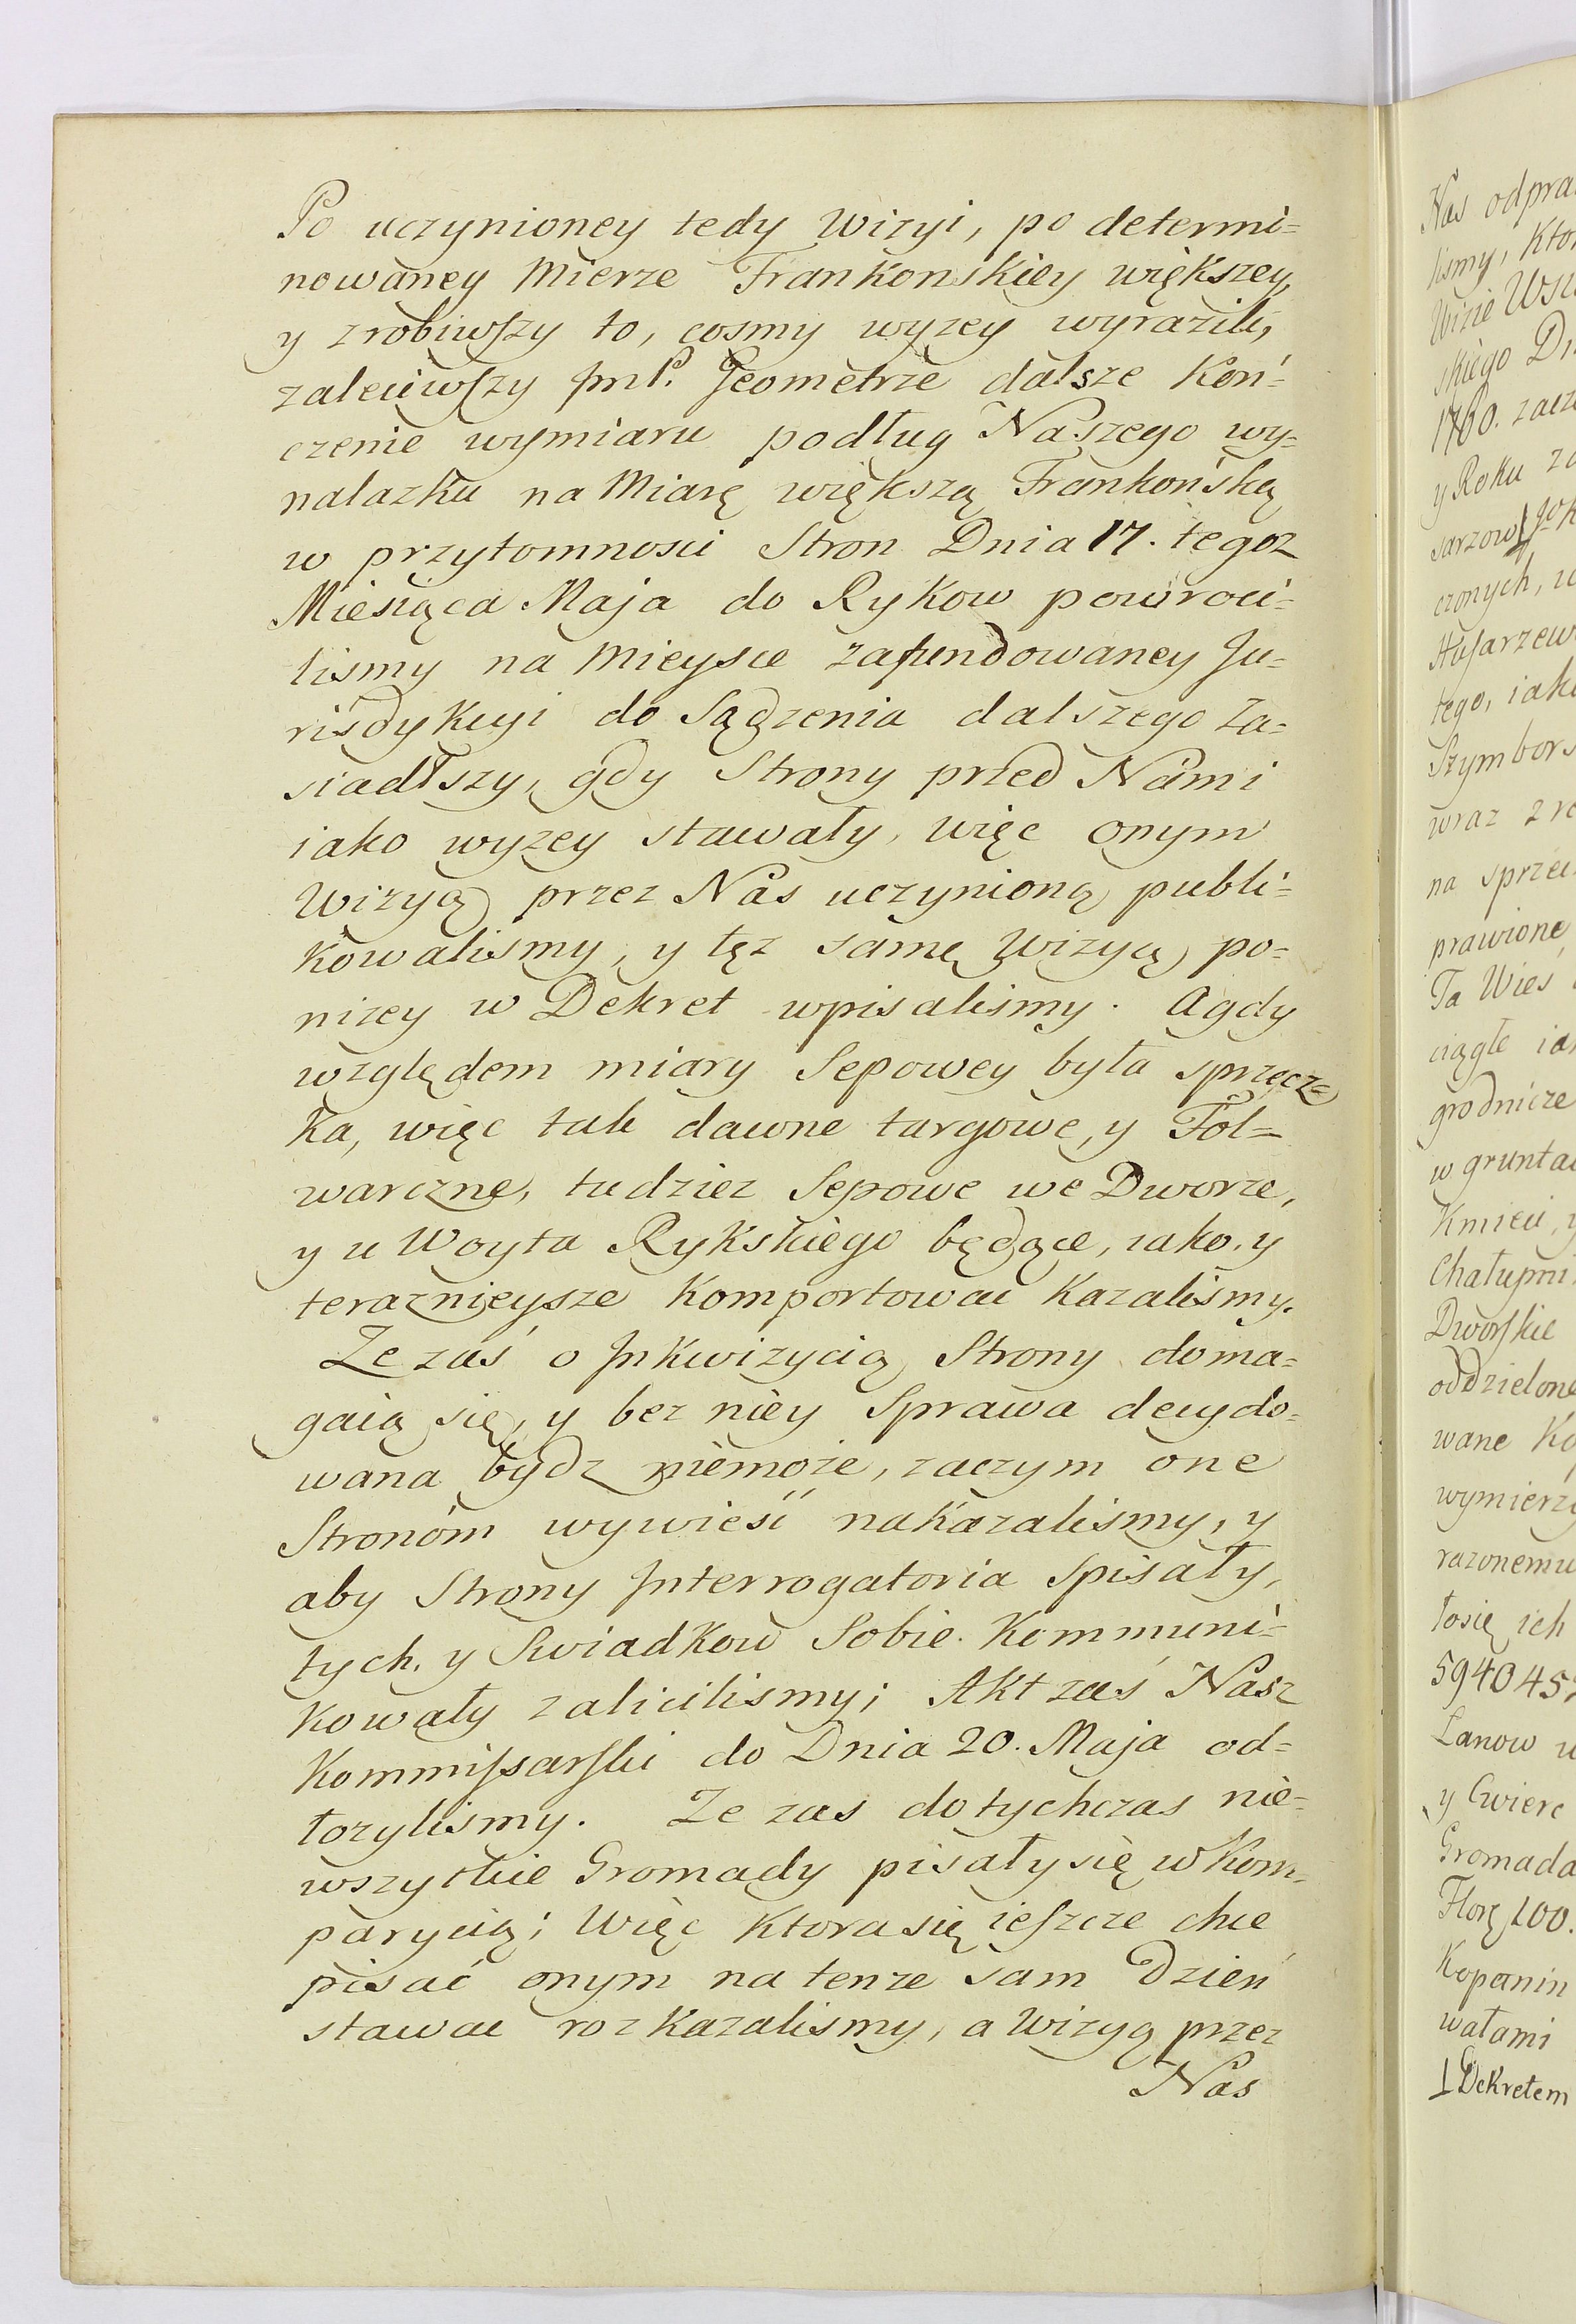 Po uczynioney tedy Wizyi, po determi=
nowaney Mierze Frankonskiey większey,
y zrobiwszy to, cosmy wyzey wyrazili,
zaleciwszy JmP. Geometrze dalsze Koń=
czenie wymiaru podług Naszego wy=
nalazku na Miarę większą Frankońską
w przytomnosci Stron Dnia 17. tegoz
Miesiąca Maja do Rykow powroci=
lismy na Mieysce zafundowaney Ju=
risdykcyi do Sądzenia dalszego Za=
siadłszy, gdy Strony przed Nami
iako wyzey stawały, więc onym
Wizyą przez Nas uczynioną publi=
kowalismy, y tęz samę Wizyą po=
nizey w Dekret wpisalismy. A gdy
względem miary Sepowey była sprzecz=
ka, więc tak dawne targowe, y Fol=
warczne, tudziez Sepowe we Dworze,
y u Woyta Rykskiego będące, iako y
teraznieysze Komportować Kazalismy.
Ze zaś o Inkwizycią Strony doma=
gaią się, y bez niey Sprawa decydo=
wana bydz niemoże, zaczym one
Stronóm wywieść nakazalismy, y
aby Strony Interrogatoria Spisały,
tych y Swiadkow Sobie Kommuni=
kowały zalicilismy; Akt zaś Nasz
Kommissarski do Dnia 20. Maja od=
łozylismy. Ze zas dotychczas nie=
wszytkie Gromady pisały się w Kom=
parycią; Więc Ktora się ieszcze chce
pisać onym na tenze sam Dzień
stawac rozkazalismy, a Wizyą przez
Nas
Nas
lismy,
Wizie
skiego
1760.
y Roku
czonych,
tego,
wraz z
na
prawione
Ta Wieś
ciągłe
w
Kmieci,
Dworskie
oddzielone
wane
łosię ich
Łanow
y Cwierc
Gromada
100.
Kopanin
wałami
Dekretem